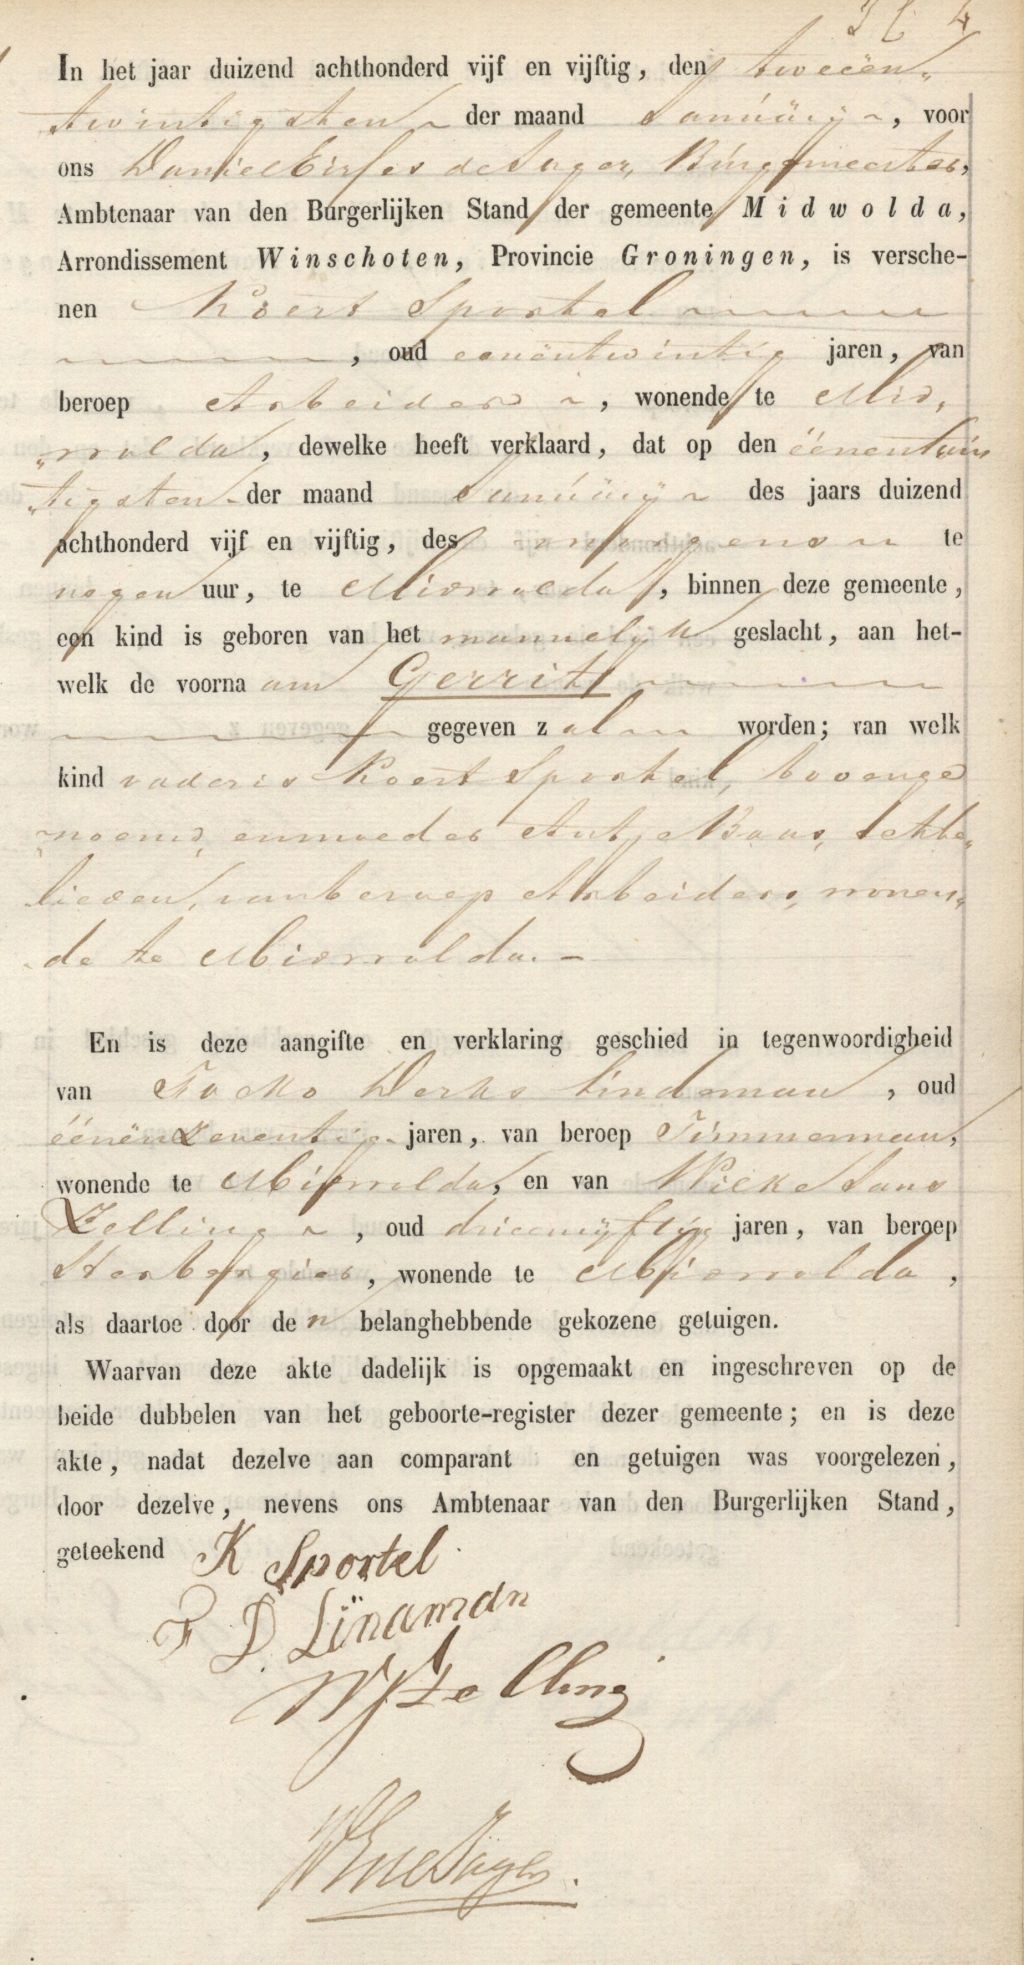 4
In het jaar duizend achthonderd vijf en vijftig, den tweeën„
twintigsten der maand Januarij, voor
ons Daniel Eisses de Jager, Burgemeester,
Ambtenaar van den Burgerlijken Stand der gemeente Midwolda,
Arrondissement Winschoten, Provincie Groningen, is versche-
nen Koert Sportel
, oud eenëntwintig jaren, van
beroep Arbeider, wonende te Mid„
„wolda, dewelke heeft verklaard, dat op den éénentwin
„tigsten der maand Januarij des jaars duizend
achthonderd vijf en vijftig, des morgens te
negen uur, te Midwolda, binnen deze gemeente,
een kind is geboren van het mannelijk geslacht, aan het-
welk de voornaam Gerrit
gegeven zal worden; van welk
kind vader is Koert Sportel, bovenge
„noemd, en moeder Antje Baas, Echte„
lieden, van beroep Arbeiders, wonen„
de te Midwolda.
En is deze aangifte en verklaring geschied in tegenwoordigheid
van Focko Derks Lindeman, oud
éénënzeventig jaren, van beroep Timmerman,
wonende te Midwolda, en van Wieke Jans
Zelling, oud drieenvijftig jaren, van beroep
Herbergier, wonende te Midwolda,
als daartoe door den belanghebbende gekozene getuigen.
Waarvan deze akte dadelijk is opgemaakt en ingeschreven op de
beide dubbelen van het geboorte-register dezer gemeente; en is deze
akte, nadat dezelve aan comparant en getuigen was voorgelezen,
door dezelve, nevens ons Ambtenaar van den Burgerlijken Stand,
geteekend K Sportel
F D. Lindaman
W J Zelling
DEdeJager.